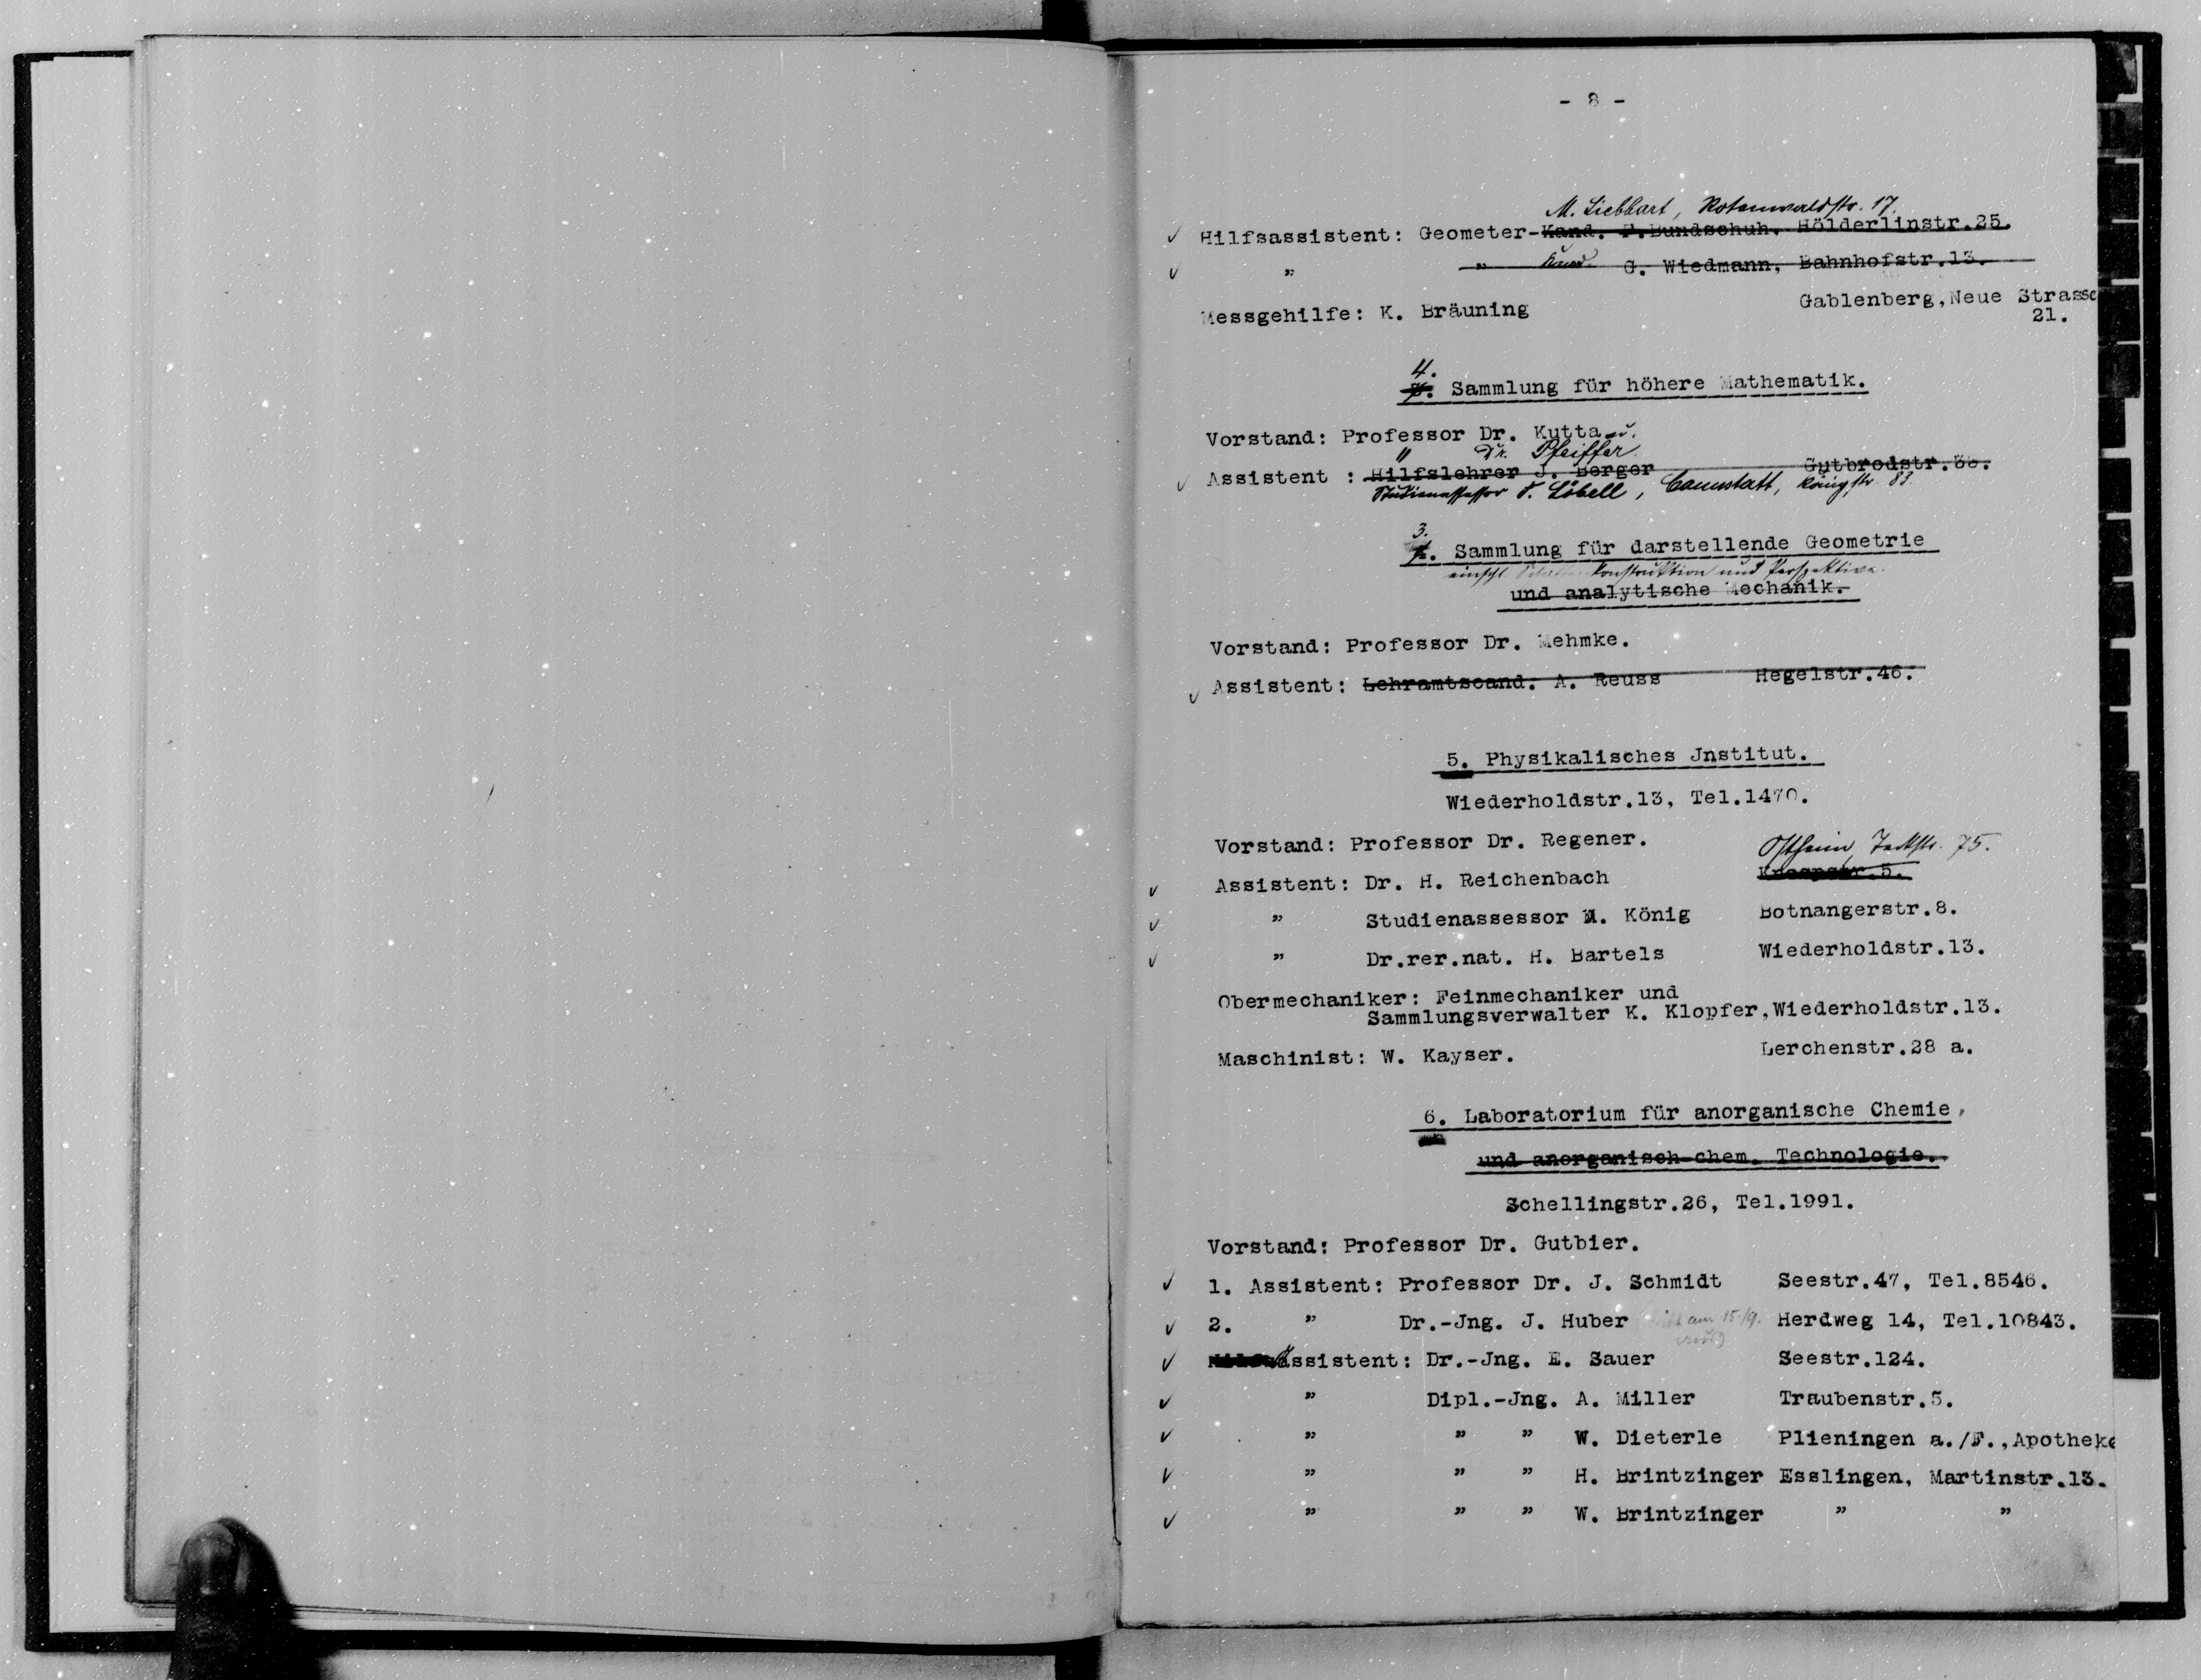 - 8 -
M. Liebbart, Rotenwaldstr. 17.
✓ Hilfsassistent: Geometer-Kand. P. Bundschuh. Hölderlinstr.25.
✓ " " Kand. G. Wiedmann, Bahnhofstr.13.
Messgehilfe: K. Bräuning Gablenberg, Neue Strasse
21.
4.
Sammlung für höhere Mathematik.
Vorstand: Professor Dr. Kutta u.
" Dr. Pfeiffer.
✓ Assistent : Hilfslehrer J. Berger Gutbrodstr.
Studienassessor F. Löbell, Cannstatt, Königstr. 83.
3.
Sammlung für darstellende Geometrie
einschl. konstruktion und Perspektive.
und analytische Mechanik.
Vorstand: Professor Dr. Mehmke.
✓ Assistent: Lehramtscand. A. Reuss Hegelstr.46.
5. Physikalisches Jnstitut.
Wiederholdstr.13, Tel.1470.
Vorstand: Professor Dr. Regener.
Ostheim, Teckstr. 75.
✓ Assistent: Dr. H. Reichenbach Knospstr.5.
✓ " Studienassessor M. König Botnangerstr.8.
✓ " Dr.rer.nat. H. Bartels Wiederholdstr.13.
Obermechaniker: Feinmechaniker und
Sammlungsverwalter K. Klopfer, Wiederholdstr.13.
Maschinist: W. Kayser. Lerchenstr.28 a.
6. Laboratorium für anorganische Chemie,
und anorganisch-chem. Technologie.
Schellingstr.26, Tel.1991.
Vorstand: Professor Dr. Gutbier.
✓ 1. Assistent: Professor Dr. J. Schmidt Seestr.47, Tel.8546.
✓ 2. " Dr.-Jng. J. Huber am 15./9. Herdweg 14, Tel.10843.
✓ Assistent: Dr.-Jng. E. Sauer Seestr.124.
✓ " Dipl.-Jng. A. Miller Traubenstr.5.
✓ " " " W. Dieterle Plieningen a./F., Apotheke
✓ " " " H. Brintzinger Esslingen, Martinstr.13.
✓ " " " W. Brintzinger " "